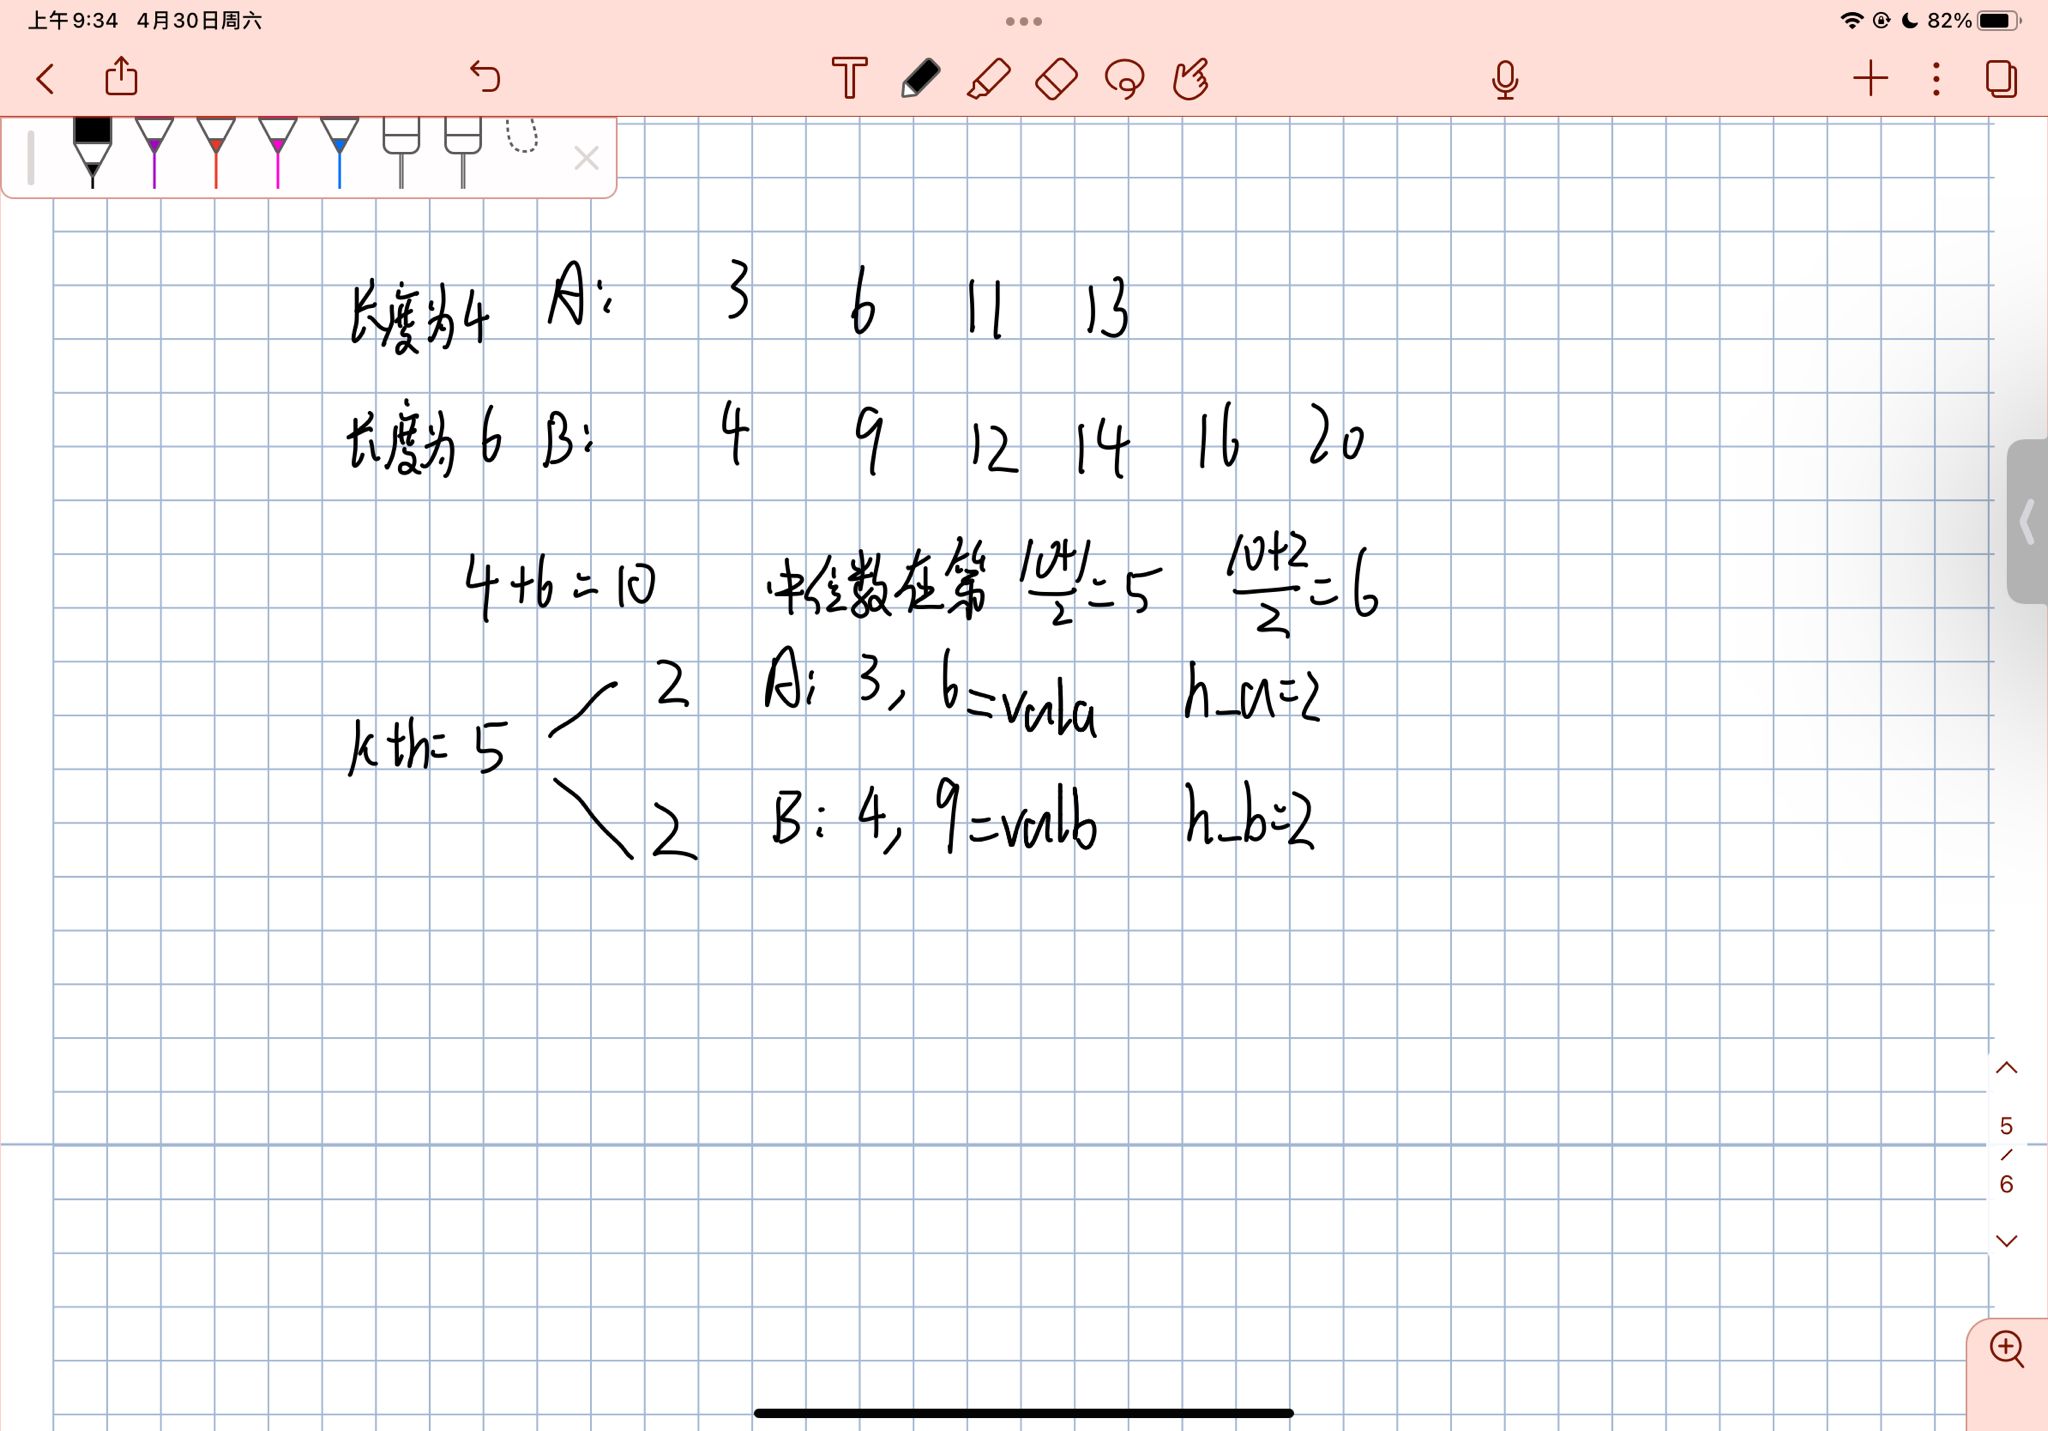 上午9:34 4月30日周六
82%
T
长度为4 A: 3 6 11 13
长度为6 B: 4 9 12 14 16 20
4+6=10 中位数在第 (10+1)/2=5 (10+2)/2=6
2 A: 3, 6=vala h_a=2
kth=5
2 B: 4, 9=valb h_b=2
5
/
6